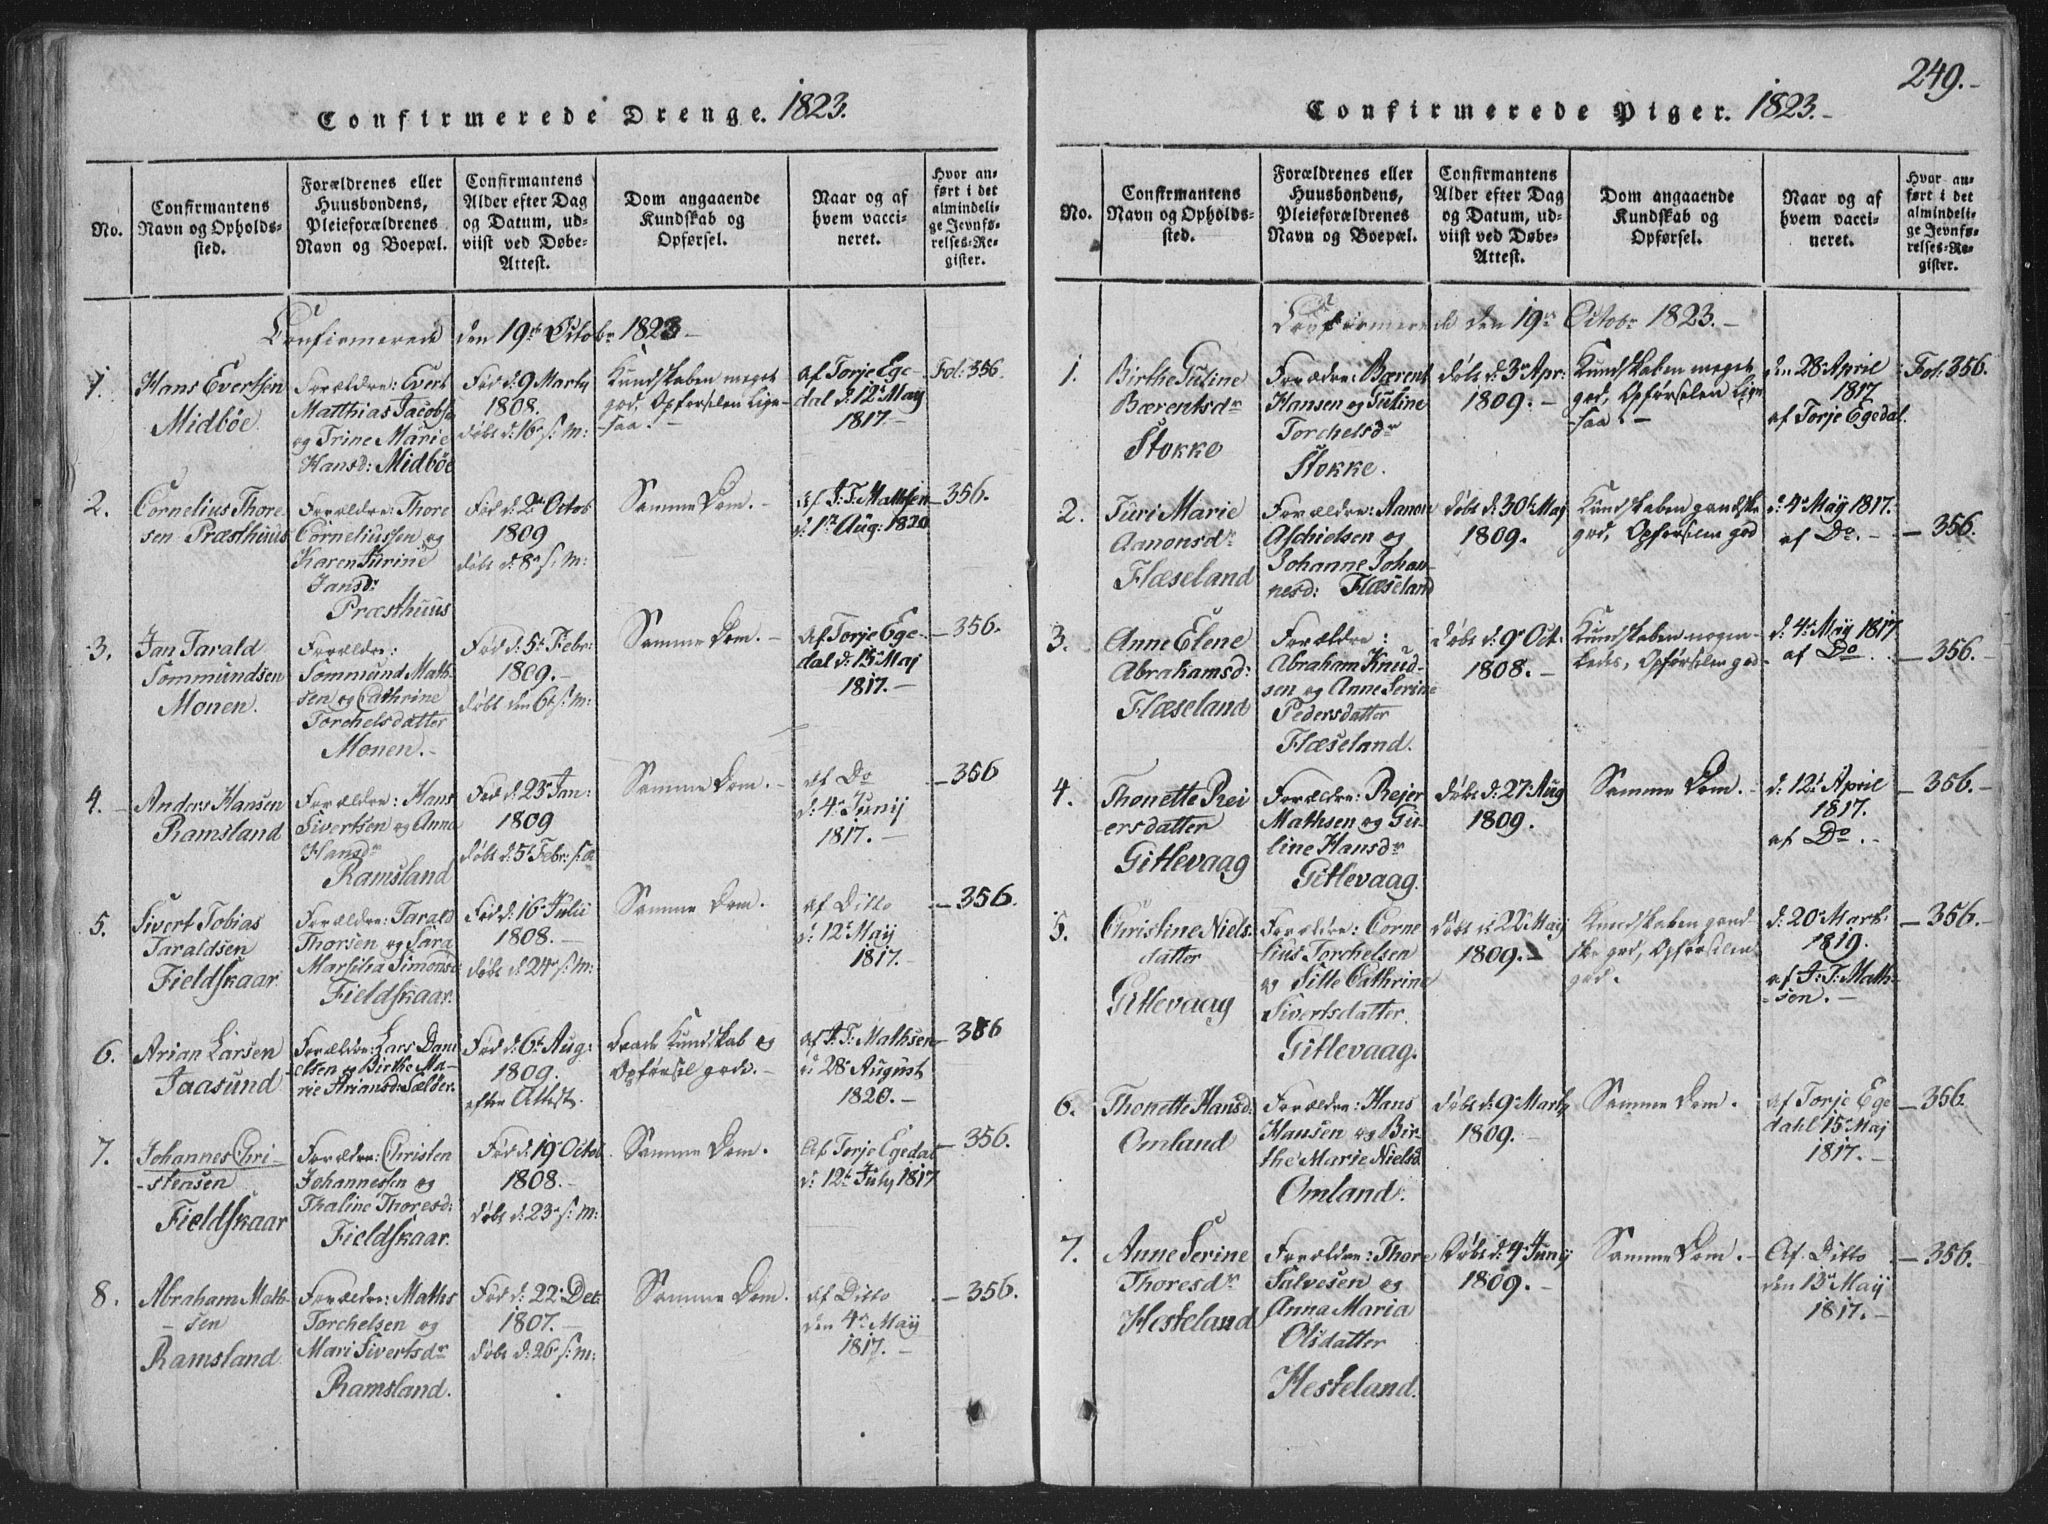 249.-
Confirmerede Drenge. 1823.
No.
Confirmantens
Navn og Opholds-
sted.
Forældrenes eller
Huusbondens,
Pleieforældrenes
Navn og Boepæl.
Confirmantens
Alder efter Dag
og Datum, ud-
viist ved Døbe-
Attest.
Dom angaaende
Kundskab og
Opførsel.
Naar og af
hvem vacci-
neret.
Hvor an-
ført i det
almindeli-
ge Jevnfø-
relses-Re-
gister.
Confirmerede den 19de Octobr 1823-
1.
Hans Evertsen
Midböe
Forældre: Evert
Matthias Jacobs
og Trine Marie
Hansd: Midböe
Föd d: 9 Marty
1808.
döbt d: 16 s: m:
Kundskaben meget
god, Opförselen lige-
saa.-
af Torje Ege-
dal d: 12 May
1817.-
Fol. 356.
2.
Cornelius Thore-
sen Præsthuus
Forældre: Thore
Corneliussen og
Karen Turine
Jansdr
Præsthuus
Föd d: 2 Octob
1809
döbt d: 8 s: m:
Samme Dom.-
af J. T. Mathsen
d: 1 Aug: 1820
-356.
3.
Jan Tarald
Tommundsen
Monen.
Forældre:
Tommund Math-
sen og Cathrine
Torchelsdatter
Monen.-
Föd d: 5 Febr:
1809.-
döbt den 6 s: m:
Samme Dom.-
af Torje Ege-
dal d: 15 Maj
1817.-
-356.
4.-
Anders Hansen
Ramsland
Forældre: Hans
Sivertsen og Anna
Hansdr
Ramsland
Föd d: 23 Jan:
1809
döbt d: 5 Febr: s: a
Samme Dom.-
af Do
d: 4 Junij
1817.-
-356
5.
Sivert Tobias
Taraldsen
Fieldskaar
Forældre: Tarald
Thorsen og Sara
Marsilia Simonsd
Fieldskaar.
Föd d: 16 Julii
1808.-
döbt d: 24 s: m:
Samme Dom.
af Ditto
d: 12 Maij
1817.-
-356.
6.
Arian Larsen
Jaasund
Forældre: Lars Dani
elsen og Birthe Ma-
rie Ariansd: Sælör.
Föd d: 6 Aug:
1809.
efter Attest.
Baade Kundskab og
Opförsel gode.-
af J. T. Mathsen
d: 28 August
1820.-
-356
7.
Johannes Chri-
-stensen
Fieldskaar
Forældre: Christen
Johannessen og
Thaline Thoresd:
Fieldskaar.
Föd d: 19 Octob
1808.-
döbt d: 23 s: m:
Samme Dom.
Af Torje Egedal
d: 12 July 1817
-356.
8.
Abraham Math-
-sen
Ramsland
Forældre: Maths
Torchelsen og
Mari Sivertsdr
Ramsland.
Föd d: 22: Dec:
1807.-
döbt d: 26 s: m:
Samme Dom.
af Ditto
den 4 Maij
1817.-
-356.
Confirmerede Piger. 1823.-
No.
Confirmantens
Navn og Opholds-
sted.
Forældrenes eller
Huusbondens,
Pleieforældrenes
Navn og Boepæl.
Confirmantens
Alder efter Dag
og Datum, ud-
viist ved Døbe-
Attest.
Dom angaaende
Kundskab og
Opførsel.
Naar og af
hvem vacci-
neret.
Hvor an-
ført i det
almindeli-
ge Jevnfø-
relses-Re-
gister.
Confirmerede den 19 Octobr 1823.-
1.
Birthe Guline
Bærentsdr
Stokke
Forældre: Bærent
Hansen og Guline
Torchelsdr
Stokke.
döbt d: 3 Apr:
1809.-
Kundskaben meget
god, Opförselen lige
-saa.-
den 28 April
1817
af Torje Egedal.
Fol. 356.
2.
Turi Marie
Aanonsdr
Flæseland
Forældre: Aanon
Aschielsen og
Johanne Johan-
nesd: Flæseland
döbt d: 30 Maj
1809.
Kundskaben gandske
god, Opförselen god
d: 4 Maij 1817.
af Do.-
-356.
3.
Anne Elene
Abrahamsd:
Flæseland
Forældre:
Abraham Knud-
sen og Anne Serine
Pedersdatter
Flæseland.
döbt d: 9 Oct:
1808.-
Kundskaben nogen-
ledes, Opförselen god-
d: 4 Maij 1817
af Do.
-356.-
4.
Thonette Rei
ersdatter
Gitlevaag
Forældre: Rejer
Mathsen og Gu-
line Hansdr
Gitlevaag.
döbt d: 27 Aug
1809.
Samme Dom.-
d: 12 April
1817.
af Do.-
-356.-
5.
Christine Niels-
datter
Gitlevaag
Forældre: Corne
lius Torchelsen
og Sille Cathrine
Sivertsdatter.
Gitlevaag.
döbt d: 22 Maij
1809.-
Kundskaben gand-
ske god, Opförselen
god.
d: 20 Mart:
1819.
af J: T: Math-
-sen.-
-356.-
6.
Thonette Hansd:
Omland
Forældre: Hans
Hansen og Bir-
the Marie Nielsd
Omland.
döbt d: 9 Marty
1809.-
Samme Dom.
af Torje Ege
dahl 15 Maj
1817.-
-356.
7.
Anne Serine
Thoresdr
Hesteland
Forældre: Thore
Salvesen og
Anna Maria
Olsdatter
Hesteland.
döbt d: 4 Junij
1809.-
Samme Dom.-
Af Ditto
den 13 Maij
1817.-
-356.